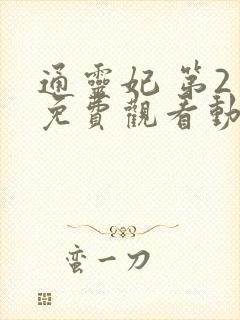 通靈妃 第2
免費觀看動
蛮一刀